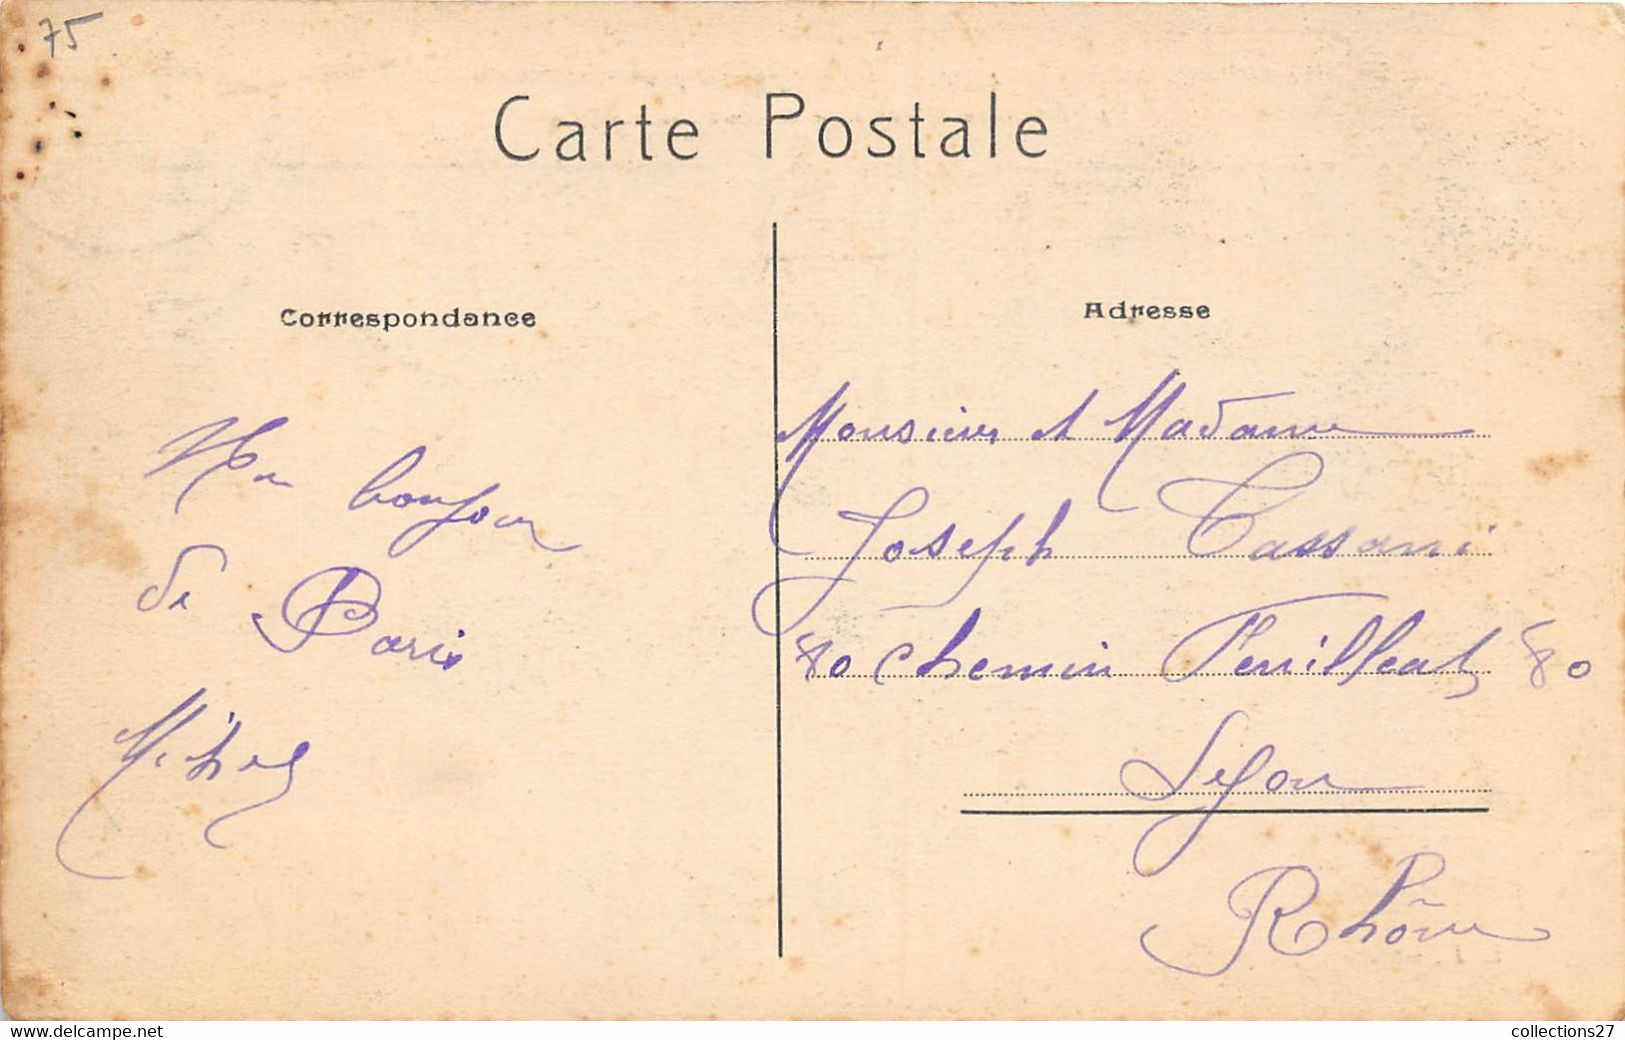 75
Carte Postale
Correspondance
Un bonjour
de Paris
Michel
Adresse
Monsieur et Madame
Joseph Cassani
80 chemin Feuilleat 80
Lyon
Rhône
www.delcampe.net
collections27